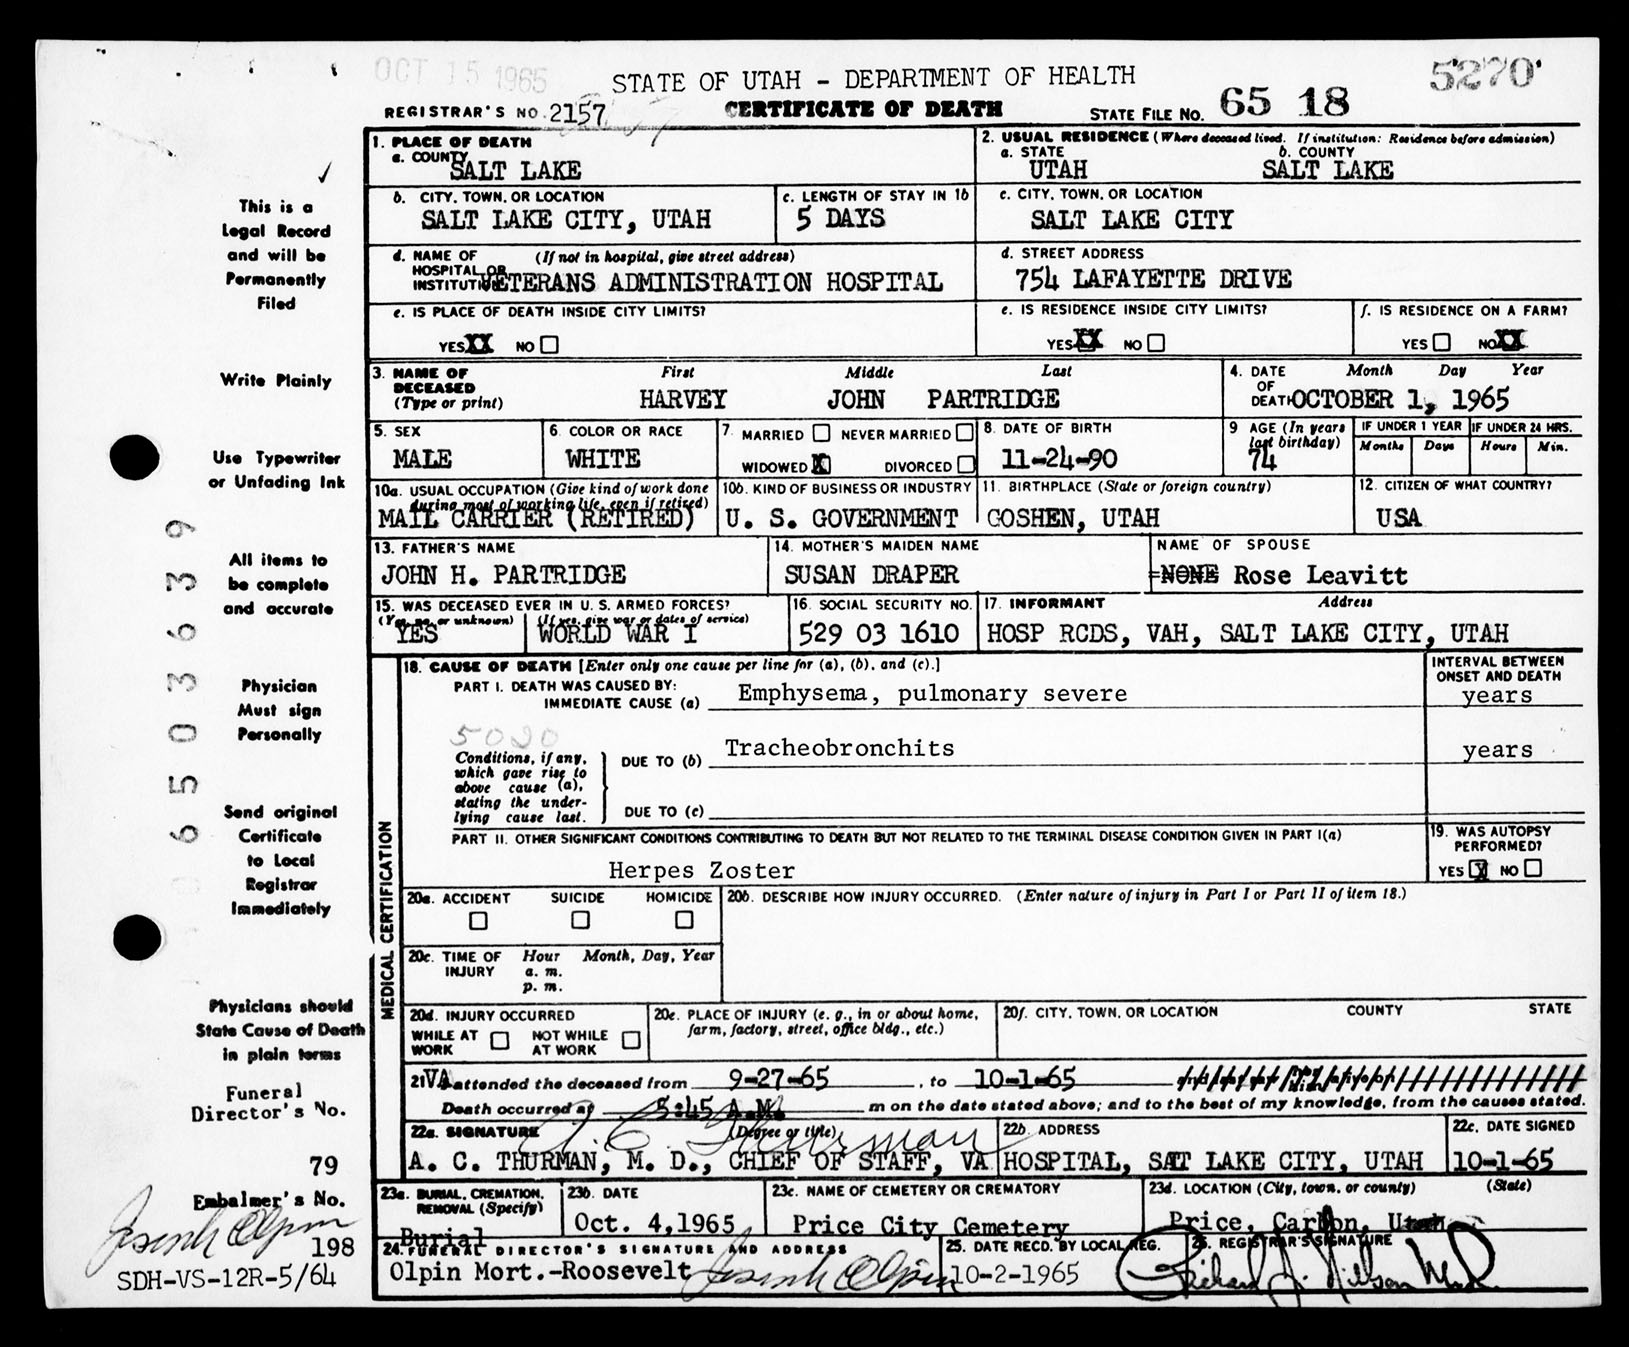 OCT 15 1965
STATE OF UTAH - DEPARTMENT OF HEALTH
5270
REGISTRAR'S NO. 2157
CERTIFICATE OF DEATH
STATE FILE NO. 65 18
1. PLACE OF DEATH
a. COUNTY
SALT LAKE
2. USUAL RESIDENCE (Where deceased lived. If institution: Residence before admission)
a. STATE b. COUNTY
UTAH SALT LAKE
b. CITY, TOWN, OR LOCATION
SALT LAKE CITY, UTAH
c. LENGTH OF STAY IN 1b
5 DAYS
c. CITY, TOWN, OR LOCATION
SALT LAKE CITY
d. NAME OF HOSPITAL OR INSTITUTION (If not in hospital, give street address)
VETERANS ADMINISTRATION HOSPITAL
d. STREET ADDRESS
754 LAFAYETTE DRIVE
e. IS PLACE OF DEATH INSIDE CITY LIMITS?
YES XX NO
e. IS RESIDENCE INSIDE CITY LIMITS?
YES XX NO
f. IS RESIDENCE ON A FARM?
YES NO XX
3. NAME OF DECEASED (Type or print)
First Middle Last
HARVEY JOHN PARTRIDGE
4. DATE OF DEATH
Month Day Year
OCTOBER 1, 1965
5. SEX
MALE
6. COLOR OR RACE
WHITE
7. MARRIED NEVER MARRIED
WIDOWED X DIVORCED
8. DATE OF BIRTH
11-24-90
9 AGE (In years last birthday)
74
IF UNDER 1 YEAR
Months Days
IF UNDER 24 HRS.
Hours Min.
10a. USUAL OCCUPATION (Give kind of work done during most of working life, even if retired)
MAIL CARRIER (RETIRED)
10b. KIND OF BUSINESS OR INDUSTRY
U. S. GOVERNMENT
11. BIRTHPLACE (State or foreign country)
GOSHEN, UTAH
12. CITIZEN OF WHAT COUNTRY?
USA
13. FATHER'S NAME
JOHN H. PARTRIDGE
14. MOTHER'S MAIDEN NAME
SUSAN DRAPER
NAME OF SPOUSE
NONE Rose Leavitt
15. WAS DECEASED EVER IN U. S. ARMED FORCES?
(Yes, no, or unknown) (If yes, give war or dates of service)
YES WORLD WAR I
16. SOCIAL SECURITY NO.
529 03 1610
17. INFORMANT Address
HOSP RCDS, VAH, SALT LAKE CITY, UTAH
MEDICAL CERTIFICATION
18. CAUSE OF DEATH [Enter only one cause per line for (a), (b), and (c).]
INTERVAL BETWEEN ONSET AND DEATH
PART I. DEATH WAS CAUSED BY:
IMMEDIATE CAUSE (a) Emphysema, pulmonary severe
years
5020
Conditions, if any, which gave rise to above cause (a), stating the underlying cause last.
DUE TO (b) Tracheobronchits
years
DUE TO (c)
PART II. OTHER SIGNIFICANT CONDITIONS CONTRIBUTING TO DEATH BUT NOT RELATED TO THE TERMINAL DISEASE CONDITION GIVEN IN PART I(a)
Herpes Zoster
19. WAS AUTOPSY PERFORMED?
YES X NO
20a. ACCIDENT SUICIDE HOMICIDE
20b. DESCRIBE HOW INJURY OCCURRED. (Enter nature of injury in Part I or Part II of item 18.)
20c. TIME OF INJURY
Hour Month, Day, Year
a. m.
p. m.
20d. INJURY OCCURRED
WHILE AT WORK NOT WHILE AT WORK
20e. PLACE OF INJURY (e. g., in or about home, farm, factory, street, office bldg., etc.)
20f. CITY, TOWN, OR LOCATION COUNTY STATE
21 VA attended the deceased from 9-27-65, to 10-1-65
Death occurred at 5:45 A.M. m on the date stated above; and to the best of my knowledge, from the causes stated.
22a. SIGNATURE (Degree or title)
A. C. Thurman
A. C. THURMAN, M. D., CHIEF OF STAFF, VA
22b. ADDRESS
HOSPITAL, SALT LAKE CITY, UTAH
22c. DATE SIGNED
10-1-65
23a. BURIAL, CREMATION, REMOVAL (Specify)
Burial
23b. DATE
Oct. 4,1965
23c. NAME OF CEMETERY OR CREMATORY
Price City Cemetery
23d. LOCATION (City, town, or county) (State)
Price, Carbon, Utah
24. FUNERAL DIRECTOR'S SIGNATURE AND ADDRESS
Olpin Mort.-Roosevelt Joseph Olpin
25. DATE RECD. BY LOCAL REG.
10-2-1965
26. REGISTRAR'S SIGNATURE
This is a
Legal Record
and will be
Permanently
Filed
Write Plainly
Use Typewriter
or Unfading Ink
All items to
be complete
and accurate
Physician
Must sign
Personally
Send original
Certificate
to Local
Registrar
Immediately
Physicians should
State Cause of Death
in plain terms
Funeral
Director's No.
79
Embalmer's No.
Joseph Olpin
198
SDH-VS-12R-5/64
0 6 5 0 3 6 3 9